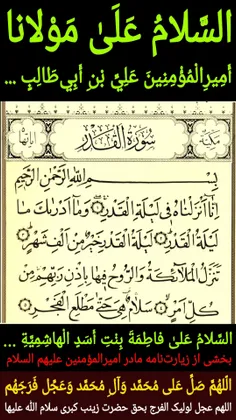 السَّلامُ عَلَىٰ مَوْلانا
أَمِیرِالْمُؤْمِنِینَ عَلِيِّ بْنِ أَبِي طَالِبٍ ...
مكيّة
سُورَةُ الْقَدْرِ
آياتها
بِسْمِ اللَّهِ الرَّحْمَنِ الرَّحِيمِ
إِنَّا أَنْزَلْنَاهُ فِي لَيْلَةِ الْقَدْرِ وَمَا أَدْرَاكَ مَا
لَيْلَةُ الْقَدْرِ لَيْلَةُ الْقَدْرِ خَيْرٌ مِنْ أَلْفِ شَهْرٍ
تَنَزَّلُ الْمَلَائِكَةُ وَالرُّوحُ فِيهَا بِإِذْنِ رَبِّهِمْ مِنْ
كُلِّ أَمْرٍ سَلَامٌ هِيَ حَتَّى مَطْلَعِ الْفَجْرِ
السَّلامُ عَلیٰ فاطِمَةَ بِنْتِ أَسَدٍ الْهاشِمِيَّةِ ...
بخشی از زیارت‌نامه مادر امیرالمؤمنین علیهم السلام
اللهُمَّ صَلِّ عَلی مُحَمَّد وَآلِ مُحَمَّد وَعَجِّل فَرَجَهُم
اللهم عجل لولیک الفرج بحق حضرت زینب کبری سلام الله علیها